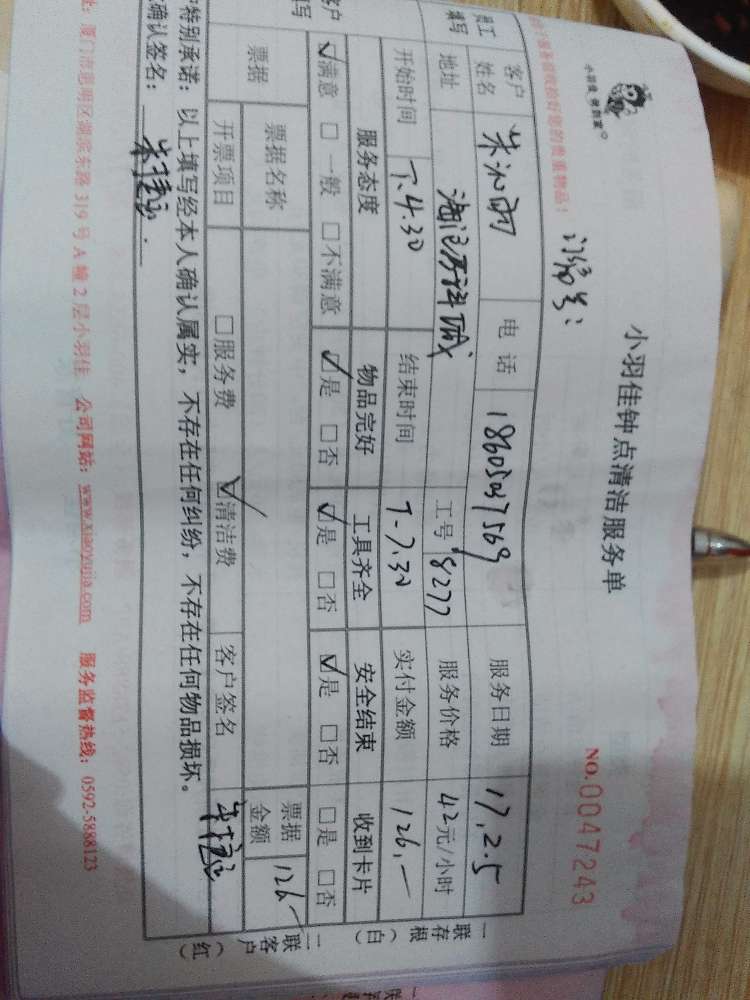 小羽佳 做到家
小羽佳钟点清洁服务单
NO.0047243
的贵重物品！
门牌号：
员工填写
客户姓名 电话 服务日期 17.2.5
地址 工号 8277 服务价格 42元/小时
开始时间 下4.30 结束时间 7.30 实付金额 126.—
客户填写
服务态度 物品完好 工具齐全 安全结束 收到卡片
☑满意 □一般 □不满意 ☑是 □否 ☑是 □否 ☑是 □否 □是 □否
票据 票据名称 票据金额 126—
开票项目 □服务费 ☑清洁费 客户签名
特别承诺：以上填写经本人确认属实，不存在任何纠纷，不存在任何物品损坏。
确认签名：
一联存根（白）
一联客户（红）
厦门市思明区湖滨东路319号A幢2层小羽佳 公司网站：www.xiaoyujia.com 服务监督热线：0592-5888123